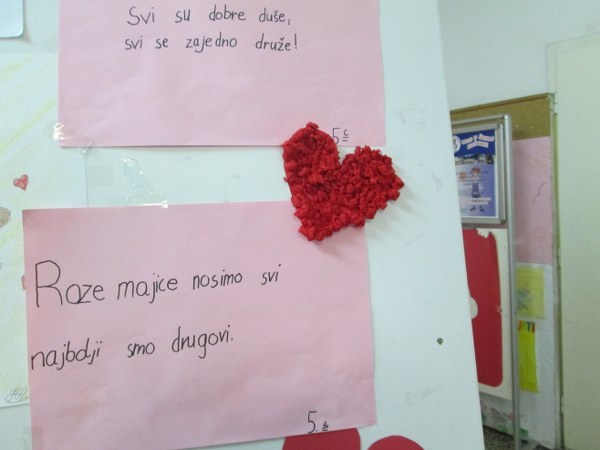 Svi su dobre duše,
svi se zajedno druže!
5 c
Roze majice nosimo svi
najbolji smo drugovi.